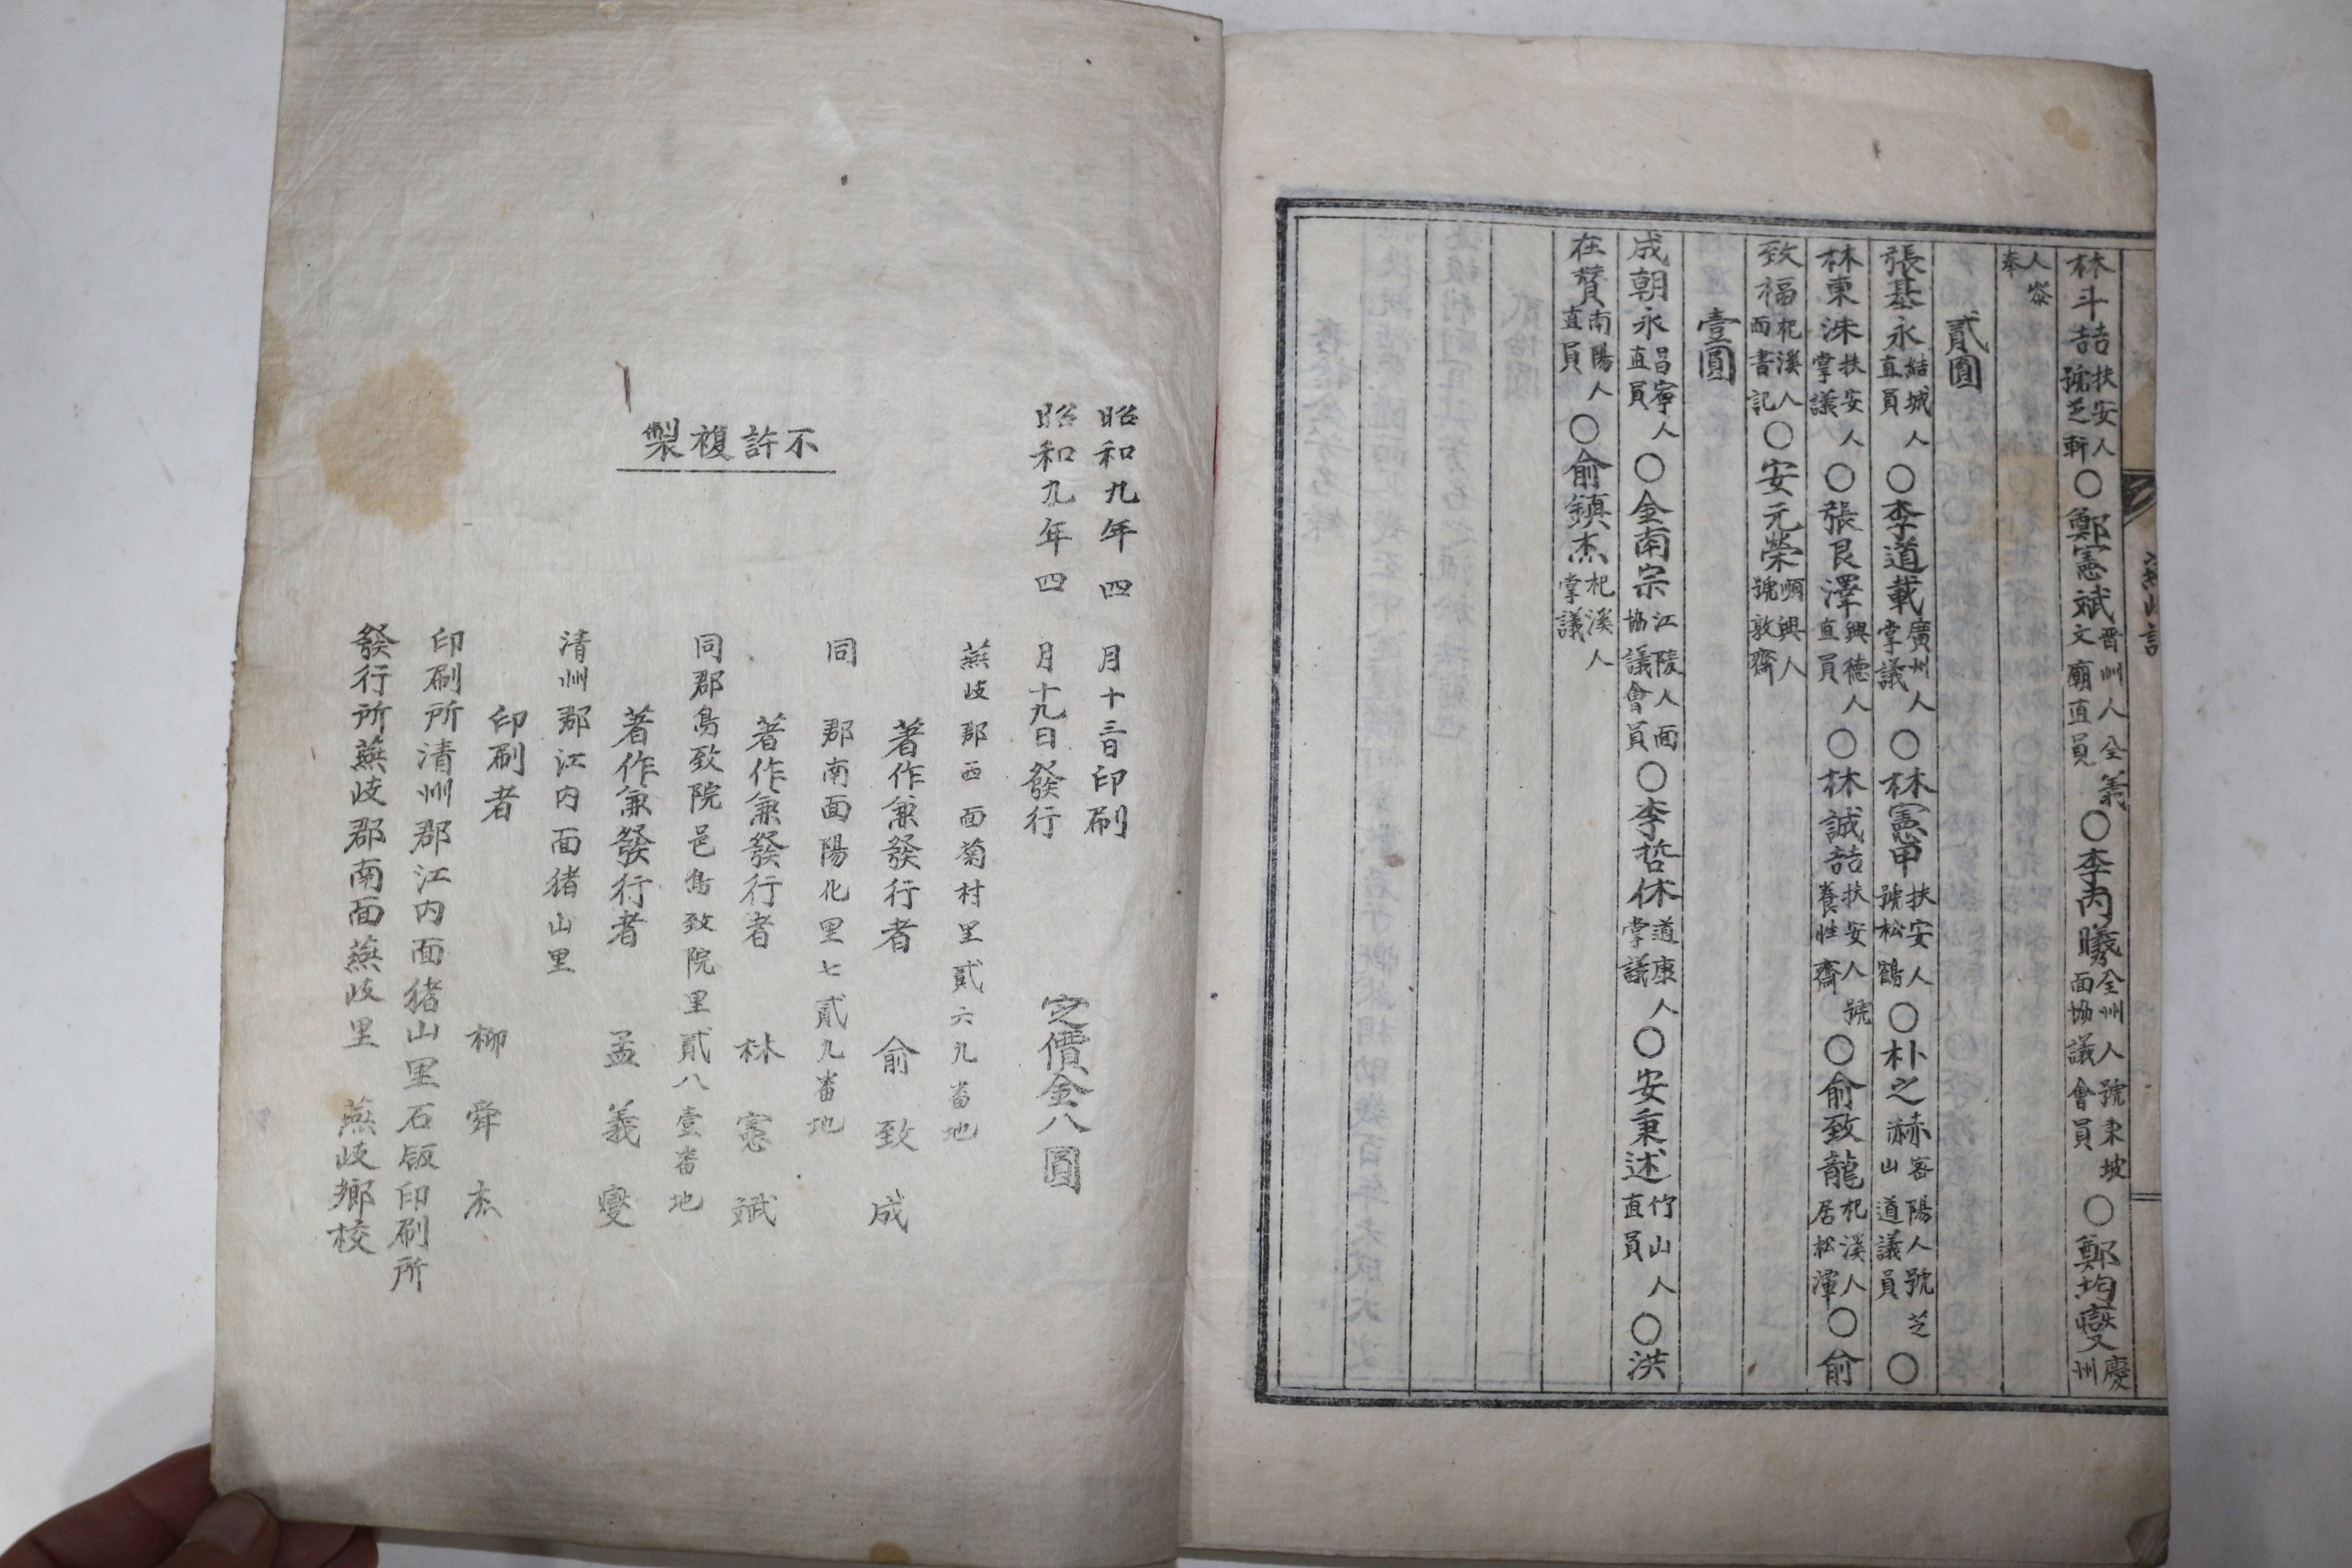 林斗喆扶安人號芝軒○鄭憲斌晋州人仝義文廟直員○李丙曦全州人號東坡面協議會員○鄭均燮慶州
人參奉
貳圓
張基永結城人直員○李道載廣州人掌議○林憲甲扶安人號松鶴○朴之赫密陽人號芝山道議員○
林東洙扶安人掌議○張艮澤興德人直員○林誠喆扶安人號養性齋○俞致龍杞溪人居松潭○俞
致福杞溪人面書記○安元榮順興人號敦齋
壹圓
成朝永昌寧人直員○金南宗江陵人面協議會員○李哲休道康人掌議○安秉述竹山人直員○洪
在賛南陽人直員○俞鎮杰杞溪人掌議
燕岐誌
昭和九年四月十三日印刷
昭和九年四月十九日發行
定價金八圓
不許複製
燕岐郡西面菊村里貳六九番地
著作兼發行者 俞致成
同郡南面陽化里七貳九番地
著作兼發行者 林憲斌
同郡鳥致院邑鳥致院里貳八壹番地
著作兼發行者 孟義燮
清州郡江内面猪山里
印刷者 柳舜杰
印刷所清州郡江内面猪山里石版印刷所
發行所燕岐郡南面燕岐里 燕岐鄉校